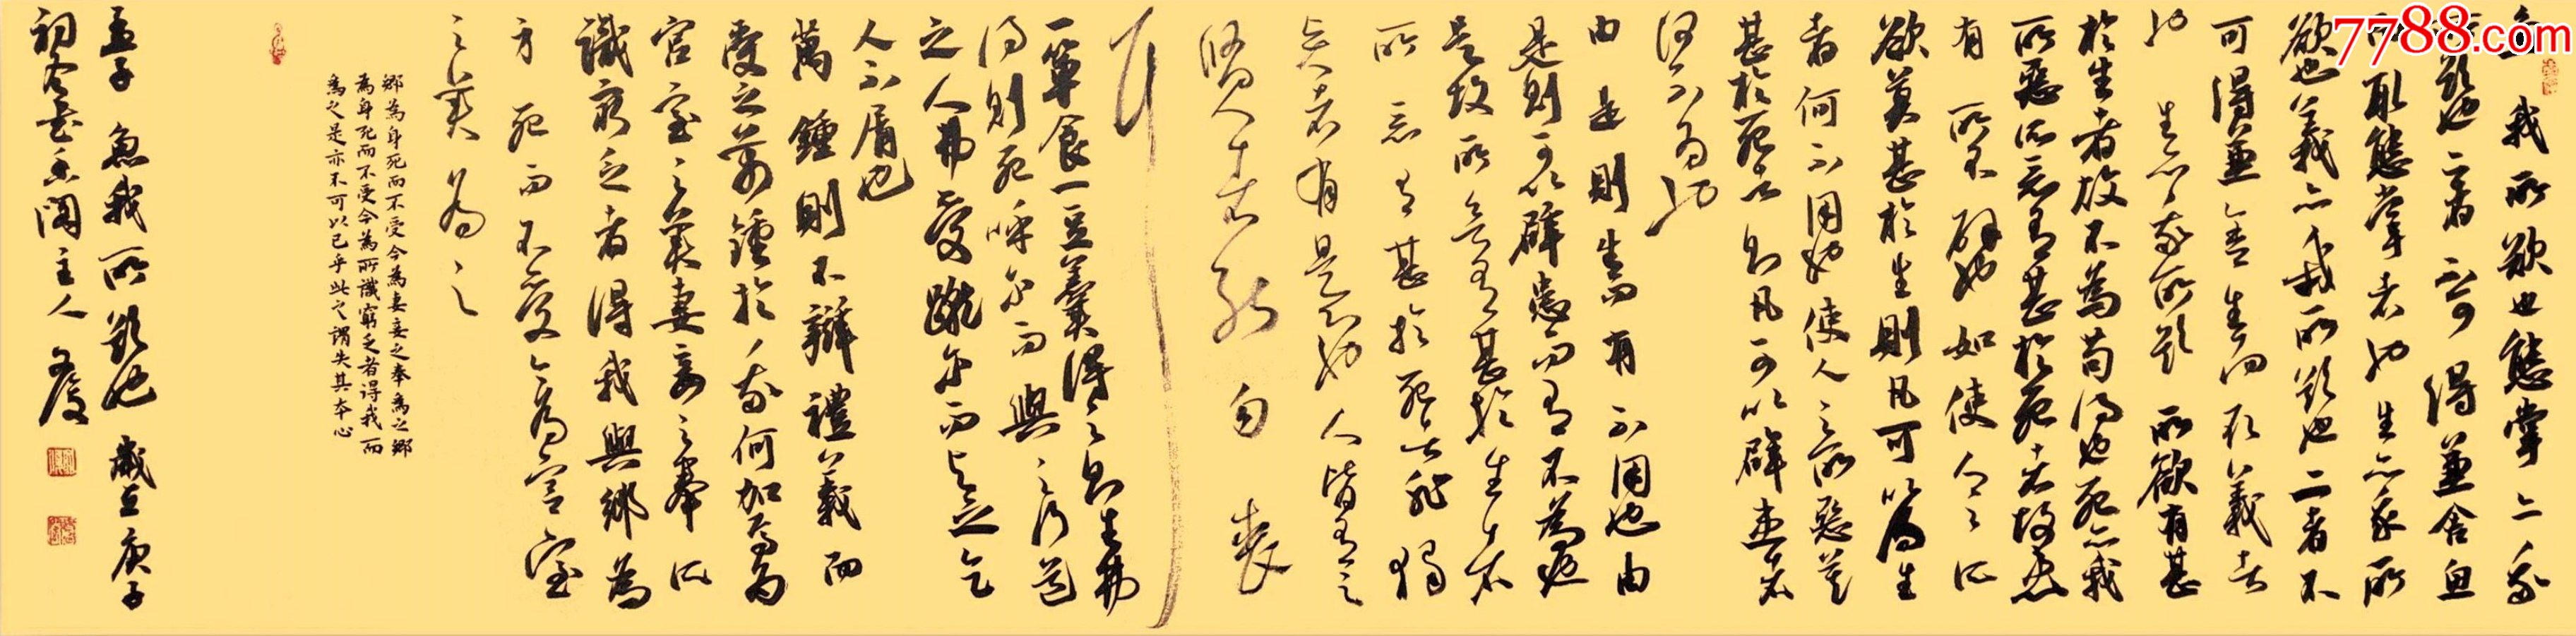 7788.com
魚我所欲也熊掌亦我
所欲也二者不可得兼舍魚
而取熊掌者也生亦我所
欲也義亦我所欲也二者不
可得兼舍生而取義者
也生亦我所欲所欲有甚
於生者故不為苟得也死亦我
所惡所惡有甚於死者故患
有所不辟也如使人之所
欲莫甚於生則凡可以得生
者何不用也使人之所惡莫
甚於死者則凡可以辟患者
何不為也
由是則生而有不用也由
是則可以辟患而有不為也
是故所欲有甚於生者
所惡有甚於死者非獨
賢者有是心也人皆有之
賢者能勿喪
耳
一簞食一豆羹得之則生弗
得則死呼爾而與之行道
之人弗受蹴爾而與之乞
人不屑也
萬鍾則不辯禮義而
受之萬鍾於我何加焉為
宮室之美妻妾之奉所
識窮乏者得我與鄉為
身死而不受今為宮室
之美為之
鄉為身死而不受今為妻妾之奉為之鄉
為身死而不受今為所識窮乏者得我而
為之是亦不可以已乎此之謂失其本心
孟子魚我所欲也歲在庚子
初冬書主人